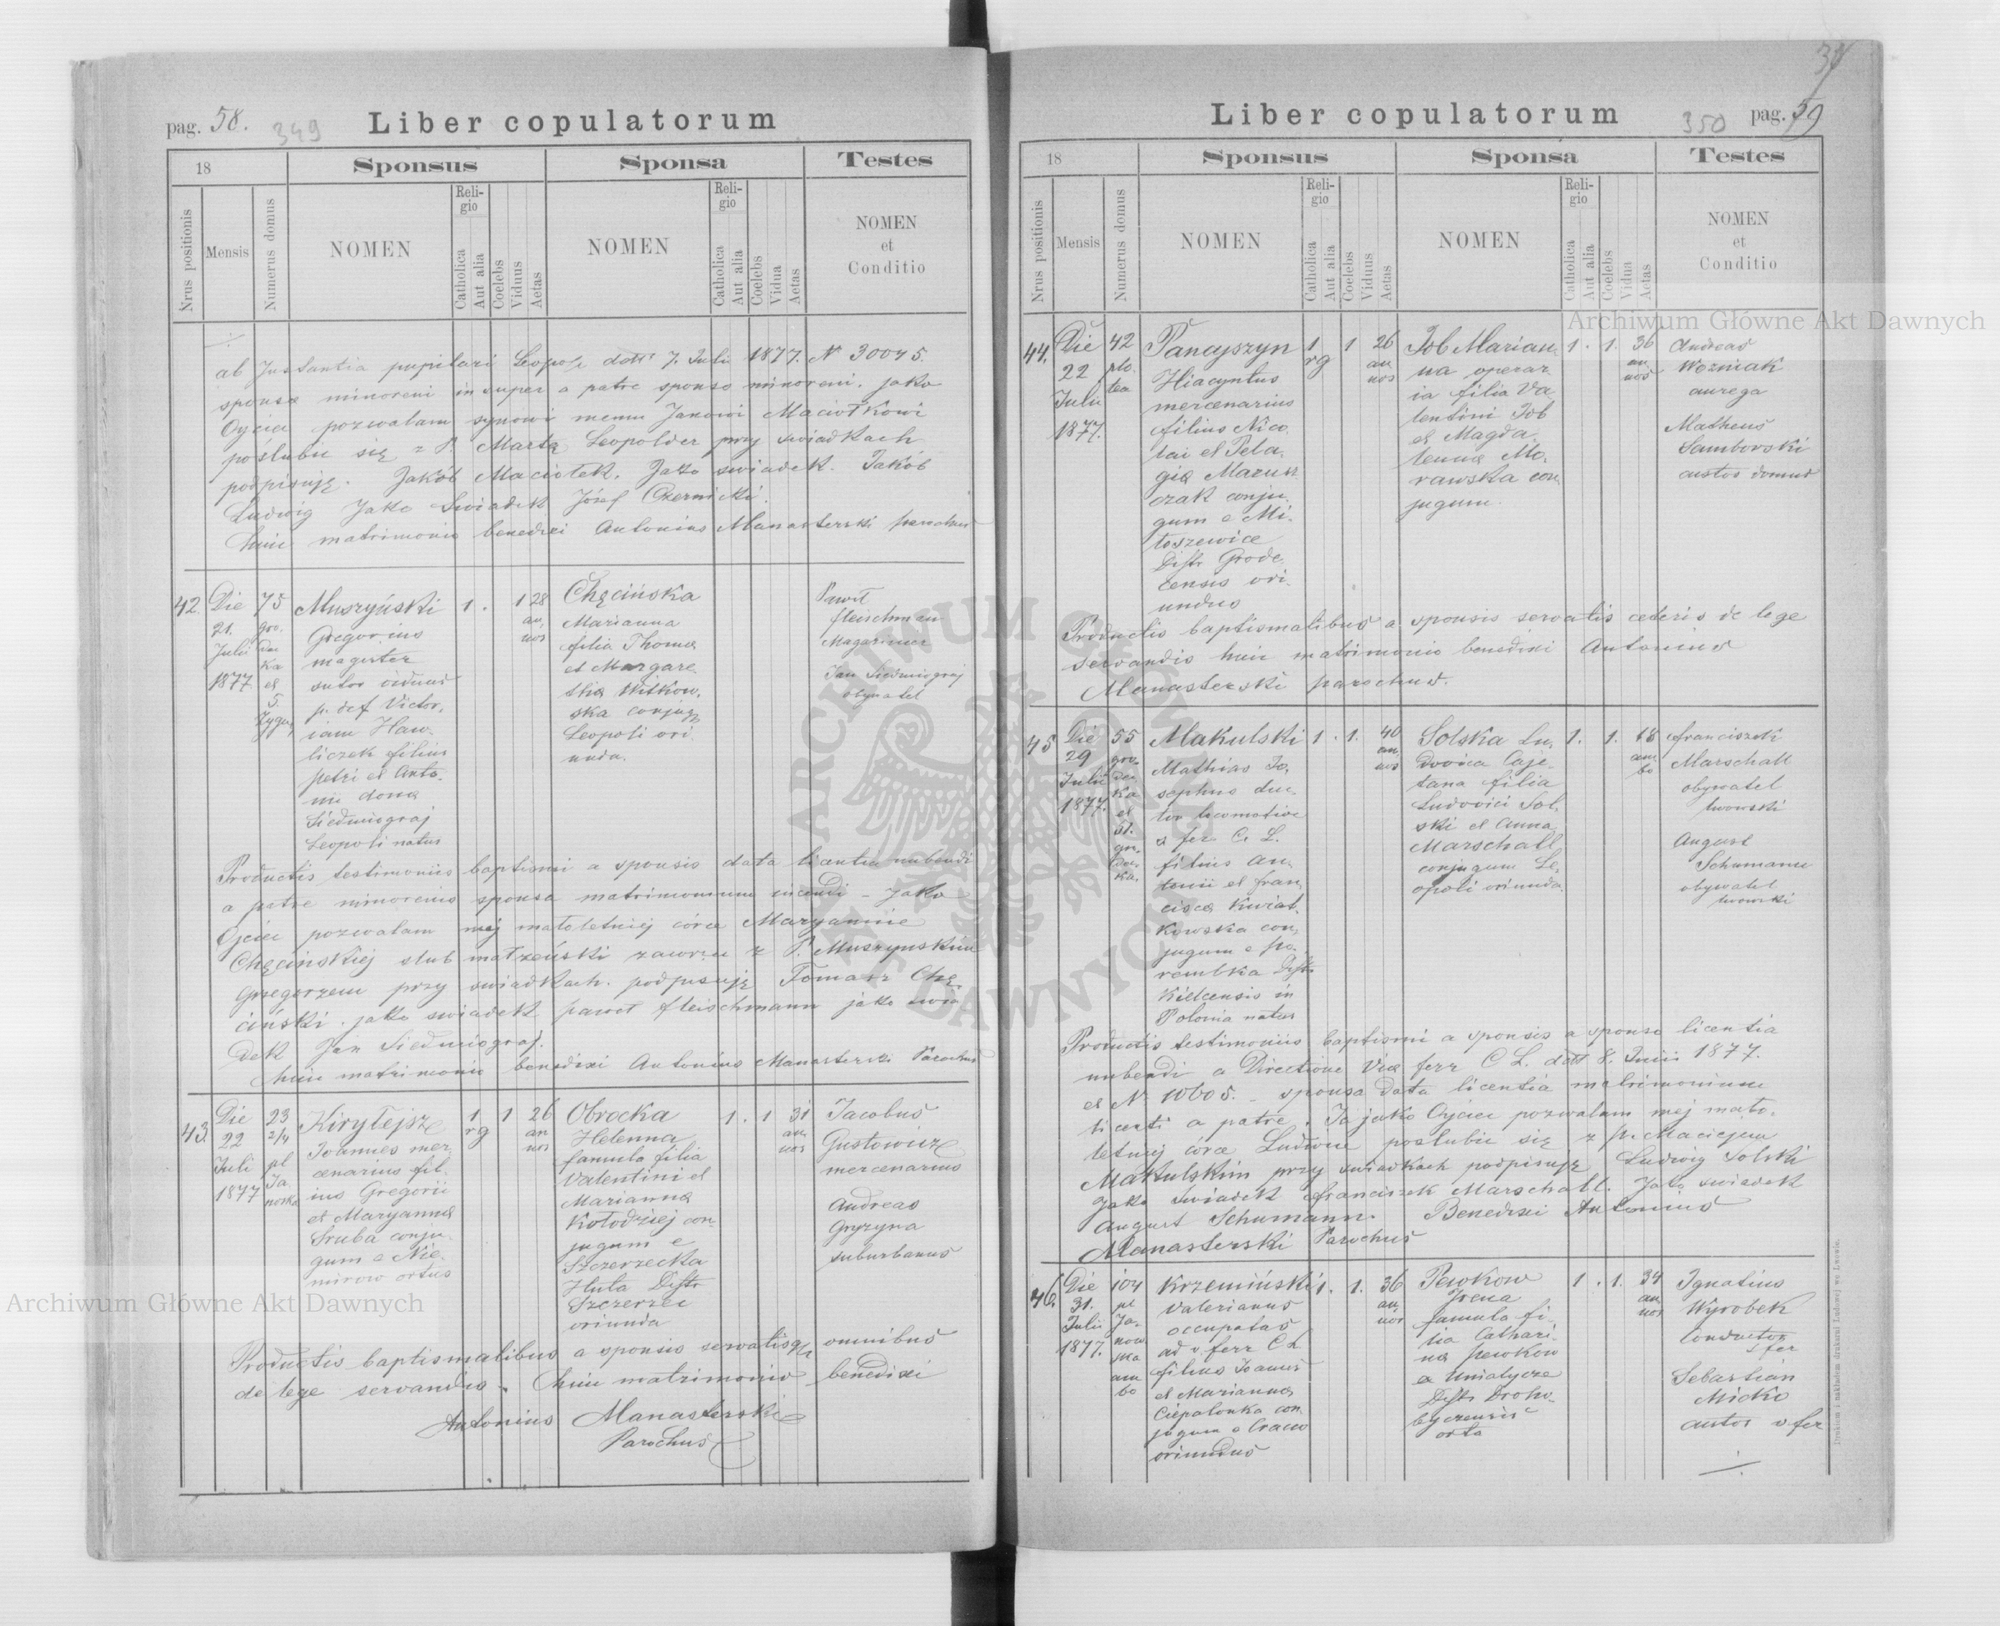 pag. 58.
349
Liber copulatorum
18
Sponsus
Sponsa
Testes
Nrus positionis
Mensis
Numerus domus
NOMEN
Religio
Catholica
Aut alia
Coelebs
Viduus
Aetas
NOMEN
Religio
Catholica
Aut alia
Coelebs
Vidua
Aetas
NOMEN
et
Conditio
ab Instantia pupilari Leopol dtt 7. Juli 1877. N 30045
sponsae minoreni insuper a patre sponso minoreni. Jako
Ojciec pozwalam synowi memu Janowi Maciołkowi
poślubić się z P. Martą Leopolder przy świadkach
podpisuję. Jakób Maciołek. Jako swiadek. Jakób
Ludwig Jako Swiadek Józef Czernicki.
huic matrimonio benedixi Antonius Manasterski parochus
42.
Die
21.
Julii
1877
75
gro
dec
ka
et
5.
Zygm
Muszyński
Gregorius
magister
sutor viduus
p. def Victor,
iam Haw-
liczek filius
petri et Anto-
nii dona
Siedmiograj
Leopoli natus
1. 1 28
an
nos
Chęcińska
Marianna
filia Thoma
et Margare
tha Witkow,
ska conjug
Leopoli ori
unda.
Paweł
fleischman
Magazinier
Jan Siedmiograj
obywatel
Productis testimoniis baptismi a sponsis data licentia nubendi
a patre minorenis sponsa matrimonium ineundi - Jako
Ojciec pozwalam mej małoletniej córce Maryannie
Chęcinskiej slub małżeński zawrzeć z P. Muszynskim
Grzegorzem przy swiadkach. podpisuję Tomasz Chę,
ciński. jako swiadek paweł fleischmann jako swia
dek Jan Siedmiograj.
huic matrimonio benedixi Antonius Manasterski Parochus
43.
Die
22
Juli
1877
23
2/4
pl
Ja
nowska
Kirylejsz
Joannes mer,
cenarius fil-
ius Gregorii
et Maryanna
Sruba conju-
gum e Nie-
mirow ortus
1
rg
1 26
an
nos
Obrocka
Helenna
famula filia
Valentini et
Marianna
Kołodziej con,
jugum e
Szczerzecka
Huta Distr
Szczerzec
oriunda
1. 1 31
an
nos
Jacobus
Gustowicz
mercenarius
Andreas
Gryzyna
suburbanus
Productis baptismalibus a sponsis servatisq omnibus
de lege servandis. huic matrimonio benedixi
Antonius Manasterski
Parochus
37
Liber copulatorum
350
pag. 59
18
Sponsus
Sponsa
Testes
Nrus positionis
Mensis
Numerus domus
NOMEN
Religio
Catholica
Aut alia
Coelebs
Viduus
Aetas
NOMEN
Religio
Catholica
Aut alia
Coelebs
Vidua
Aetas
NOMEN
et
Conditio
44.
Die
22
Julii
1877.
42
pla
tea
Pancyszyn
Hiacyntus
mercenarius
filius Nico
lai et Pela,
gia Mazur
czak conju,
gum e Mi-
łoszewice
Distr Grode,
censis ori-
undus
1.
rg
1 26
an
nos
Job Marian
na operar
ia filia Va
lentini Job
et Magda
lenna Mo,
rawska con,
jugum.
1. 1. 36
an
nos
Andreas
Wozniak
auriga
Matheus
Samborski
custos domus
Productis baptismalibus a sponsis servatis ceteris de lege
servandis huic matrimonio benedixi Antonius
Manasterski parochus.
45
Die
29
Julii
1877.
55
gro
dec
ka
et
51.
gro
dec
ka.
Makulski
Mathias Jo,
sephus duc
tor locomotivae
a fer C. L.
filius An,
tonii et fran,
cisca Kwiat,
kowska con,
jugum e po,
rembka Distr
Kielcensis in
Polonia natus
1. 1. 40
an
nos
Solska Lu,
dovica Caje-
tana filia
Ludovici Sol-
ski et Anna
Marschall
conjugum Le-
opoli oriunda
1. 1. 18
am
bo
franciszek
Marschall
obywatel
lwowski
August
Schumann
obywatel
lwowski
Productis testimoniis baptismi a sponsis a sponso licentia
nubendi a Directione Via ferr C L. dtt 8. Junii 1877.
et N. 10605. - sponsa data licentia matrimonium
licenti a patre. Ja jako Ojciec pozwalam mej mało-
letniej córce Ludwice poslubic się z p. Maciejem
Makulskim przy swiadkach podpisuję Ludwig Solski
Jako Swiadek franciszek Marschall. Jako swiadek
August Schumann. Benedixi Antonius
Manasterski Parochus
46.
Die
31.
Julii
1877.
104
pl
Ja-
now
ska
am
bo
Krzemiński
Valerianus
occupatus
ad v. ferr C L
filius Joannis
et Marianna
Ciepalonka con,
jugum e Cracov
oriundus
1. 1. 36
an
nos
Pewkow
Irena
famula fi-
lia Cathari-
na pewkow
ex Uniatycze
Distr Droho-
byczensis
orta
1. 1. 34
an
nos
Ignatius
Wyrobek
conductor
v fer
Sebastian
Micko
custos v fer
Drukiem i nakładem drukarni Ludowej we Lwowie.
Archiwum Główne Akt Dawnych
Archiwum Główne Akt Dawnych
ARCHIWUM GŁÓWNE AKT DAWNYCH